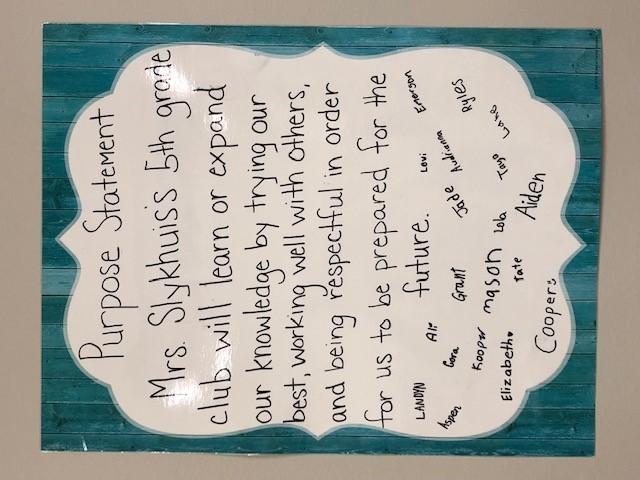 Purpose Statement
Mrs. Slykhuis's 5th grade
club will learn or expand
our knowledge by trying our
best, working well with others,
and being respectful in order
for us to be prepared for the
future.
LANDYN
Ali
Levi
Emerson
Aspen
Cora
Grant
Jade
Audrianna
Ryles
Kooper
mason
Lola
Taya
Laine
Elizabeth
Tate
Aiden
Cooper